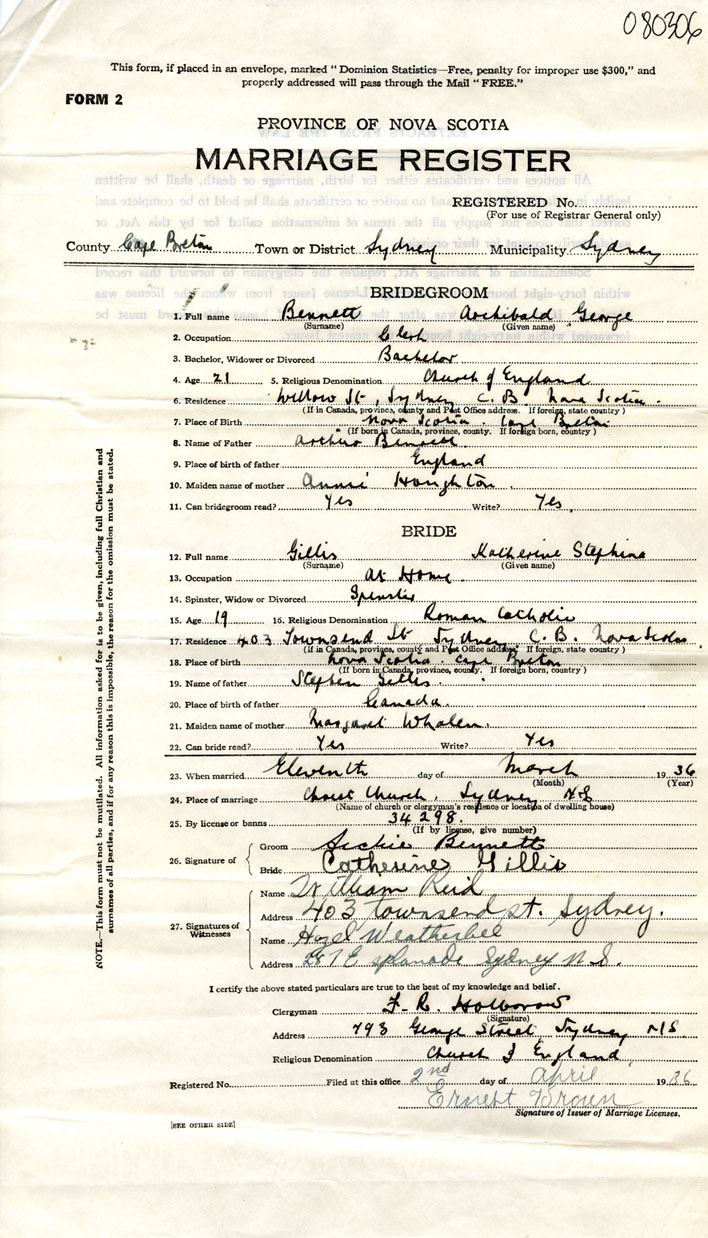 080306
This form, if placed in an envelope, marked "Dominion Statistics—Free, penalty for improper use $300," and
properly addressed will pass through the Mail "FREE."
FORM 2
PROVINCE OF NOVA SCOTIA
MARRIAGE REGISTER
REGISTERED No.
(For use of Registrar General only)
County Cape Breton Town or District Sydney Municipality Sydney
BRIDEGROOM
1. Full name Bennett Archibald George
(Surname) (Given name)
2. Occupation Clerk
3. Bachelor, Widower or Divorced Bachelor
4. Age 21 5. Religious Denomination Church of England
6. Residence Willow St, Sydney C. B. Nova Scotia.
(If in Canada, province, county and Post Office address. If foreign, state country)
7. Place of Birth Nova Scotia. Cape Breton
(If born in Canada, province, county. If foreign born, country)
8. Name of Father Arthur Bennett
9. Place of birth of father England
10. Maiden name of mother Annie Houghton
11. Can bridegroom read? Yes Write? Yes
BRIDE
12. Full name Gillis Katherine Stephina
(Surname) (Given name)
13. Occupation At Home
14. Spinster, Widow or Divorced Spinster
15. Age 19 16. Religious Denomination Roman Catholic
17. Residence 403 Townsend St Sydney C. B. Nova Scotia
(If in Canada, province, county and Post Office address. If foreign, state country)
18. Place of birth Nova Scotia. Cape Breton
(If born in Canada, province, county. If foreign born, country)
19. Name of father Stephen Gillis
20. Place of birth of father Canada.
21. Maiden name of mother Margaret Whalen.
22. Can bride read? Yes Write? Yes
23. When married Eleventh day of March 1936
(Month) (Year)
24. Place of marriage Christ Church, Sydney N.S
(Name of church or clergyman's residence or location of dwelling house)
25. By license or banns 34298.
(If by license, give number)
26. Signature of Groom Bennett
Bride Catherine Gillis
27. Signatures of Witnesses Name William Reid
Address 403 townsend st. Sydney.
Name Hazel Weatherbee
Address 287 Esplanade Sydney N.S.
NOTE.—This form must not be mutilated. All information asked for is to be given, including full Christian and
surnames of all parties, and if for any reason this is impossible, the reason for the omission must be stated.
I certify the above stated particulars are true to the best of my knowledge and belief.
Clergyman F. R. Holborow
(Signature)
Address 793 George Street Sydney N/S
Religious Denomination Church of England
Registered No. Filed at this office 2nd day of April 1936
Ernest Brown
Signature of Issuer of Marriage Licenses.
[SEE OTHER SIDE]